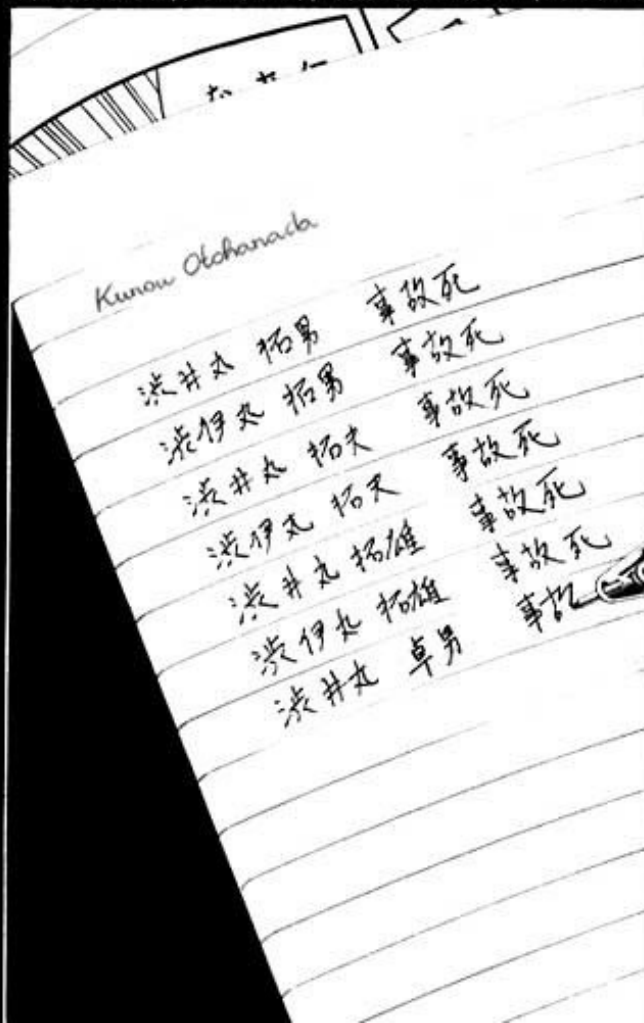 Kunou Otohanada
渋井丸 拓男 事故死
渋伊丸 拓男 事故死
渋井丸 拓夫 事故死
渋伊丸 拓夫 事故死
渋井丸 拓雄 事故死
渋伊丸 拓雄 事故死
渋井丸 卓男 事故